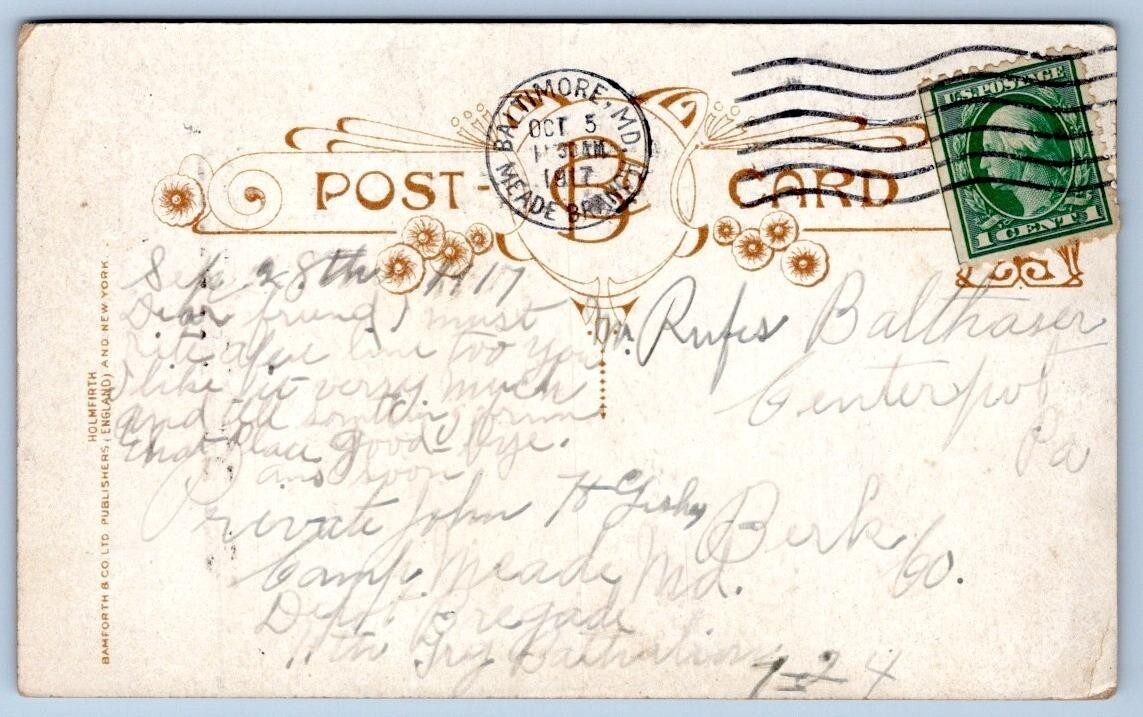 BALTIMORE, MD.
OCT 5
11 30 AM
1917
MEADE BRANCH
U.S. POSTAGE
1 CENT 1
POST-CARD
Sep 28th 1917
Dear friend I must
rite a few line too you
I like it verry much
and tell
that place good-bye.
ans soon
Private John H
Camp Meade Md.
Dept. Bregade
11th Trg Bathalion
7-24
Mr. Rufes Balthaser
Centerpot
Pa
Berk Co.
BAMFORTH & CO. LTD. PUBLISHERS
HOLMFIRTH
(ENGLAND)
AND NEW YORK.